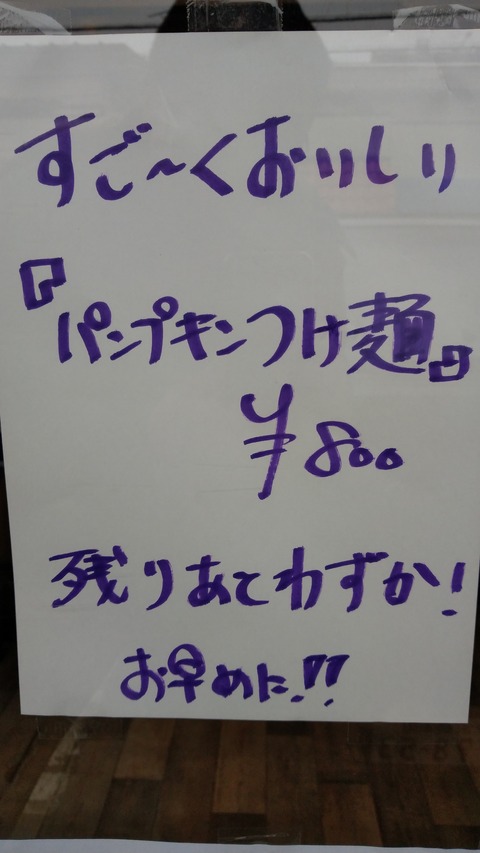 すご〜くおいしい
『パンプキンつけ麺』
¥800
残りあとわずか!
お早めに!!